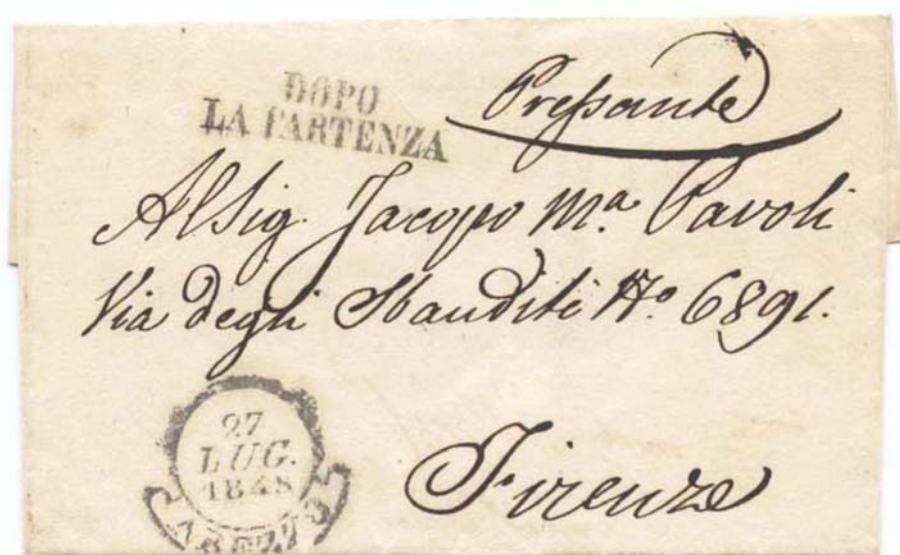 DOPO
LA PARTENZA
Pressante
Al Sig. Jacopo Ma. Pavoli
Via degli Sbanditi No. 6891.
27
LUG.
1848
AREZZO
Firenze